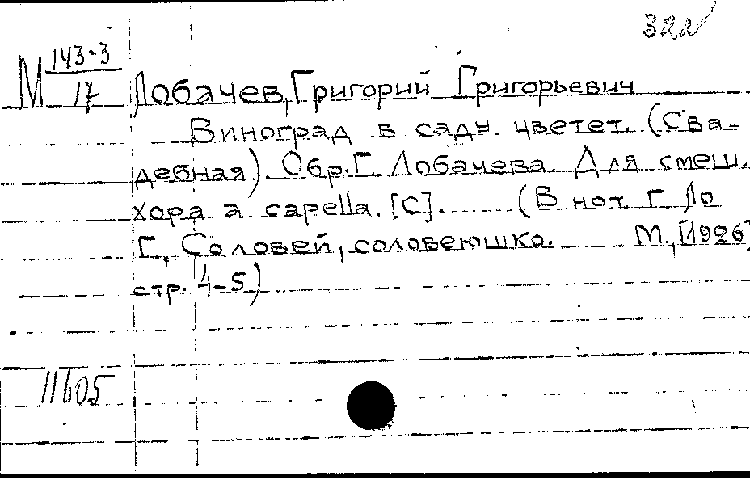 322
М 143-3
17
Лобачев, Григорий Григорьевич
Виноград в саду цветет. (Сва-
дебная). Обр. Г. Лобачева. Для смеш.
хора a capella. [С]. (В нот. Г. Ло
Г., Соловей, соловеюшко. М., [1926]
стр. 4-5)
11605